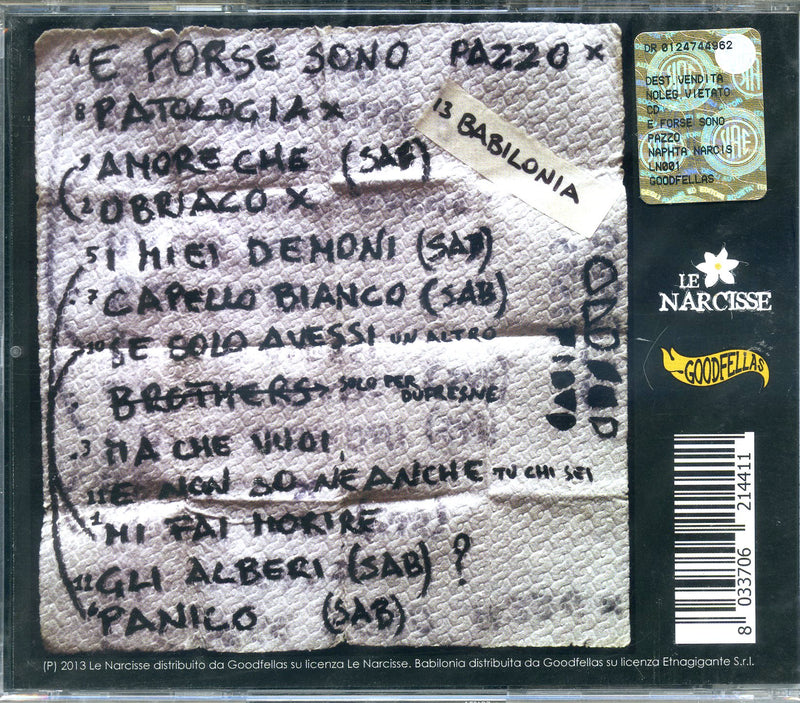 4 E FORSE SONO PAZZO x
8 PATOLOGIA x
9 AMORE CHE (SAB)
2 OBRIACO x
5 I MIEI DEMONI (SAB)
7 CAPELLO BIANCO (SAB)
10 SE SOLO AVESSI UN ALTRO
BROTHERS SOLO PER
DUFRESNE
3 MA CHE VUOI,
11 E NON SO NEANCHE TU CHI SEI
1 MI FAI MORIRE
12 GLI ALBERI (SAB) ?
6 PANICO (SAB)
13 BABILONIA
DR 0124744962
DEST.VENDITA
NOLEG.VIETATO
CD
E FORSE SONO
PAZZO
NAPHTA NARCIS
LN001
GOODFELLAS
SIAE
LE
NARCISSE
GOODFELLAS
8 033706 214411
(P) 2013 Le Narcisse distribuito da Goodfellas su licenza Le Narcisse. Babilonia distribuita da Goodfellas su licenza Etnagigante S.r.l.